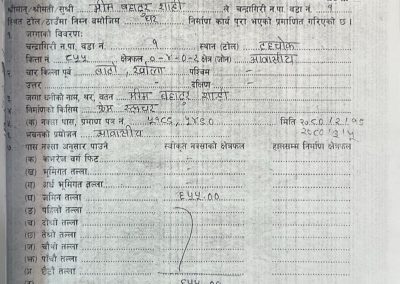 श्रीमान/श्रीमती/सुश्री भीम बहादुर शाही ले चन्द्रागिरी न.पा. वडा नं. १
स्थित टोल/ठाउँमा निम्न बमोजिम घर निर्माण कार्य पुरा भएको प्रमाणित गरिएको छ ।
१. जग्गाको विवरणः
चन्द्रागिरी न.पा. वडा नं. १ स्थान (टोल) दहचोक
कित्ता नं ८५५ क्षेत्रफल ०-४-०-२ क्षेत्र (जोन) आवासीय
२ चार किल्ला पूर्व बाटो, खोला पश्चिम -
उत्तर - दक्षिण -
३ जग्गा धनीको नाम, थर, वतन भीम बहादुर शाही
४ निर्माणको किसिम
५ (क) नक्सा पास, प्रमाण पत्र नं. मिति २०८०/२/१८
६ भवनको प्रयोजन आवासीय २०८०/३/५
७. पास नक्सा अनुसार पाउने स्वीकृत नक्साको क्षेत्रफल हालसम्म निर्माण क्षेत्रफल
(क) कभरेज वर्ग फिट
(ख) भूमिगत तल्ला
(ग) अर्ध भूमिगत तल्ला
(घ) जमिन तल्ला ६५५.००
(ङ) पहिलो तल्ला
(च) दोश्रो तल्ला
(छ) तेश्रो तल्ला
(ज) चौथो तल्ला
(झ) पाँचौ तल्ला
(ञ) छैटौ तल्ला